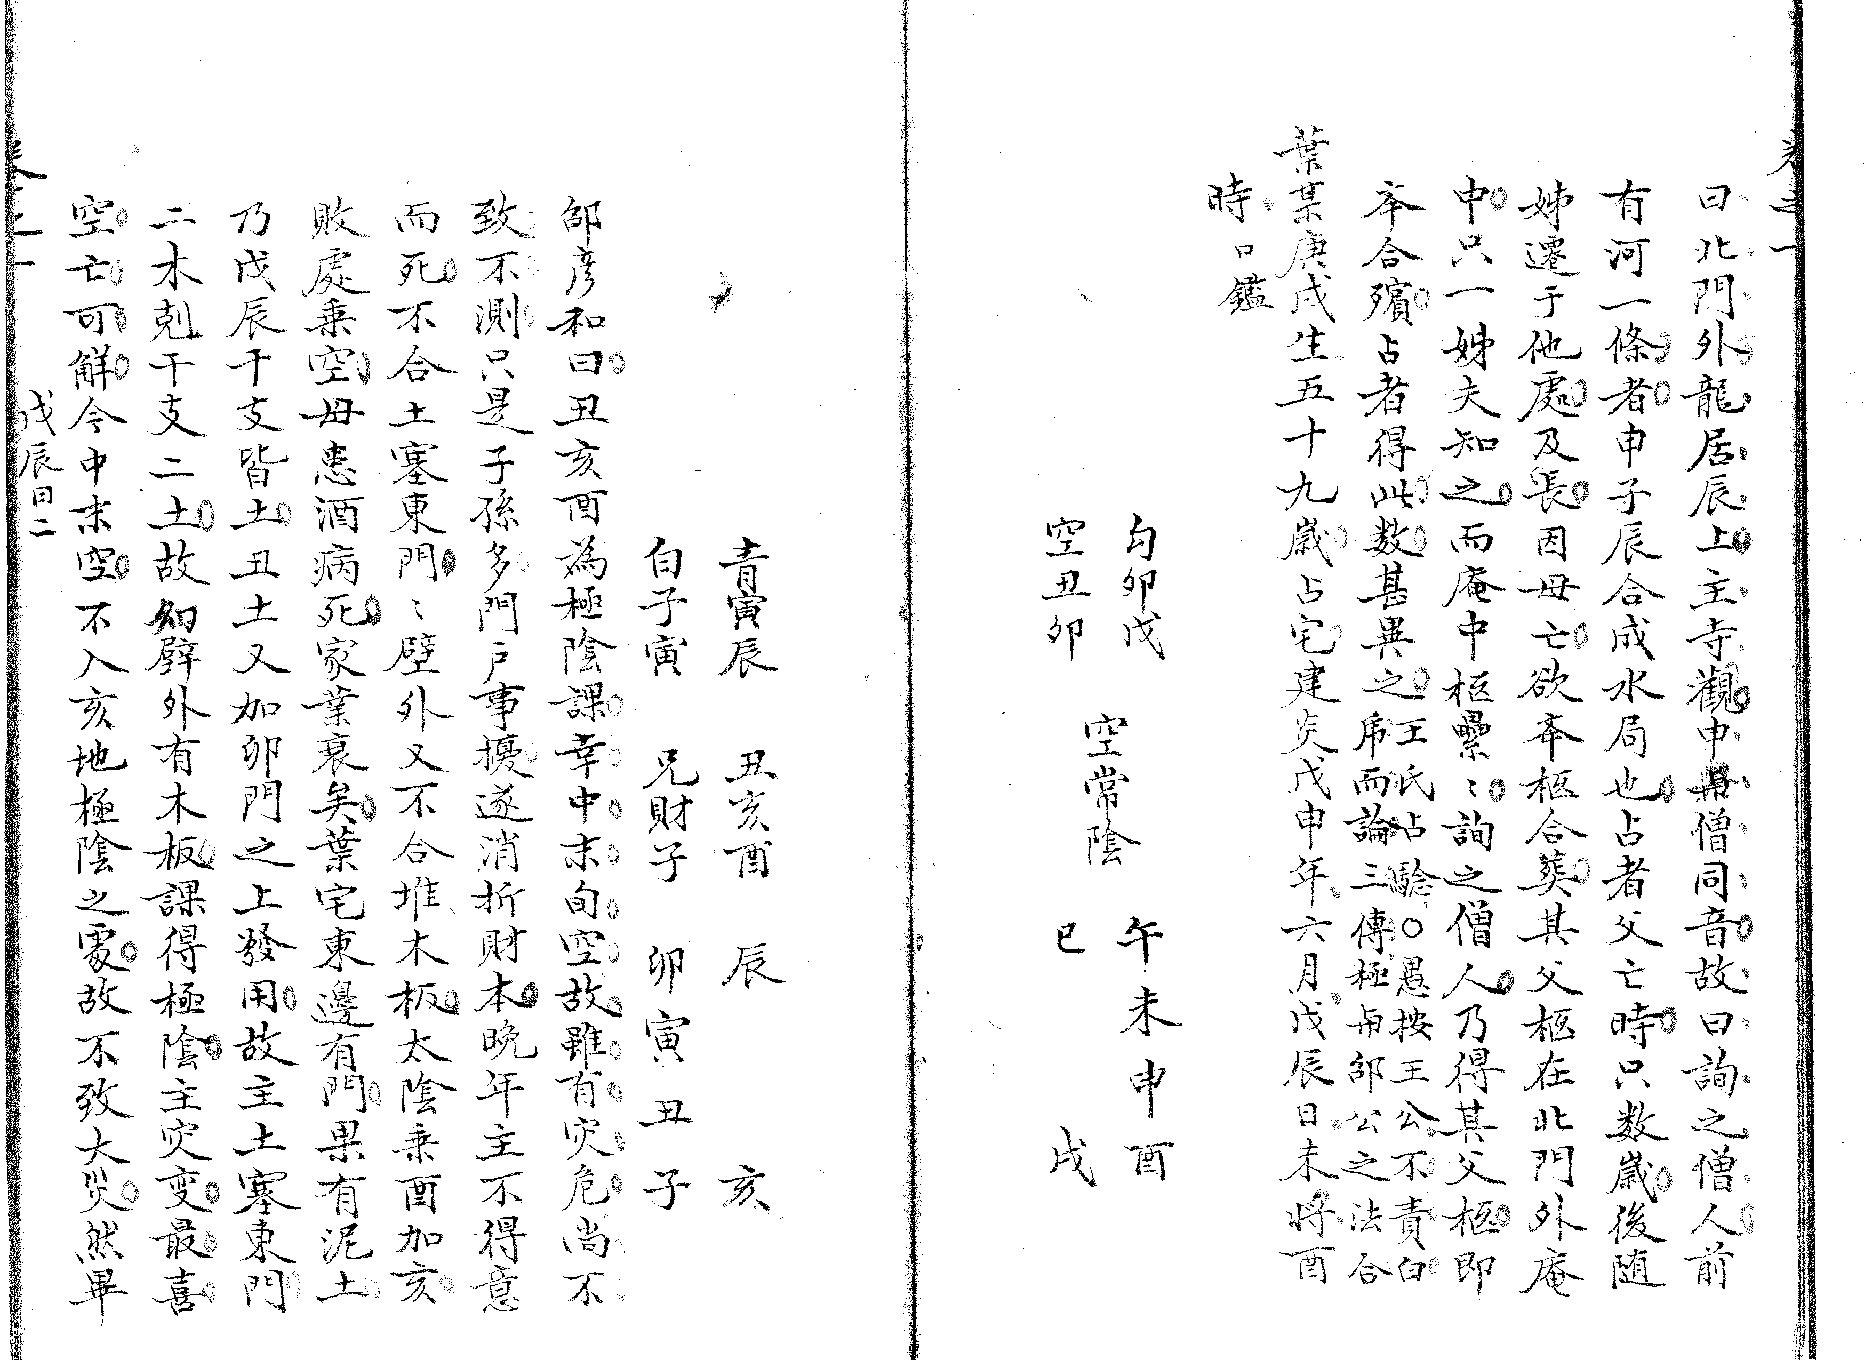 卷之一
曰北門外龍居辰上主寺觀申與僧同音故曰詢之僧人前
有河一條者申子辰合成水局也占者父亡時只数歲後随
姊遷于他處及長因母亡欲奔柩合葬其父柩在北門外庵
中只一姊夫知之而庵中柩纍〻詢之僧人乃得其父柩即
夲合殯占者得此数甚異之
王氏占驗〇愚按王公不責白
帍而論三傳極與邵公之法合
葉某庚戌生五十九歲占宅建炎戊申年六月戊辰日未將酉
時 口鑑
勾卯戊 空常陰 午未申酉
空丑卯 巳 戌
青寅辰 丑亥酉 辰 亥
白子寅 兄財子 卯寅丑子
邵彦和曰丑亥酉為極陰課幸中末旬空故雖有灾危尚不
致不測只是子孫多門户事擾遂消折財本晩年主不得意
而死不合土塞東門〻壁外又不合堆木板太陰乘酉加亥
敗處乘空母患酒病死家業衰矣葉宅東邊有門果有泥土
乃戊辰干支皆土丑土又加卯門之上發用故主土塞東門
二木剋干支二土故知壁外有木板課得極陰主灾变最喜
空亡可解今中末空不入亥地極陰之處故不致大災然畢
卷之一
戊辰日二